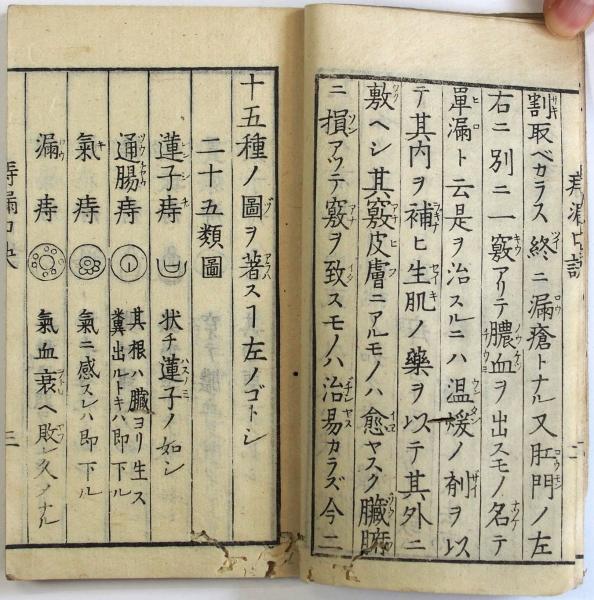 割取ベカラス終ニ漏瘡トナル又肛門ノ左
右ニ別ニ一竅アリテ膿血ヲ出スモノ名テ
單漏ト云是ヲ治スルニハ温煖ノ剤ヲ以
テ其内ヲ補ヒ生肌ノ藥ヲ以テ其外ニ
敷ヘシ其竅皮膚ニアルモノハ愈ヤスク臓腑
ニ損アツテ竅ヲ致スモノハ治易カラズ今二
十五種ノ圖ヲ著スヿ左ノゴトシ
二十五類圖
蓮子痔 状チ蓮子ノ如シ
通腸痔 其根ハ臓ヨリ生ス
糞出ルトキハ即下ル
氣痔 氣ニ感スレハ即下ル
漏痔 氣血衰ヘ敗レ久メナル